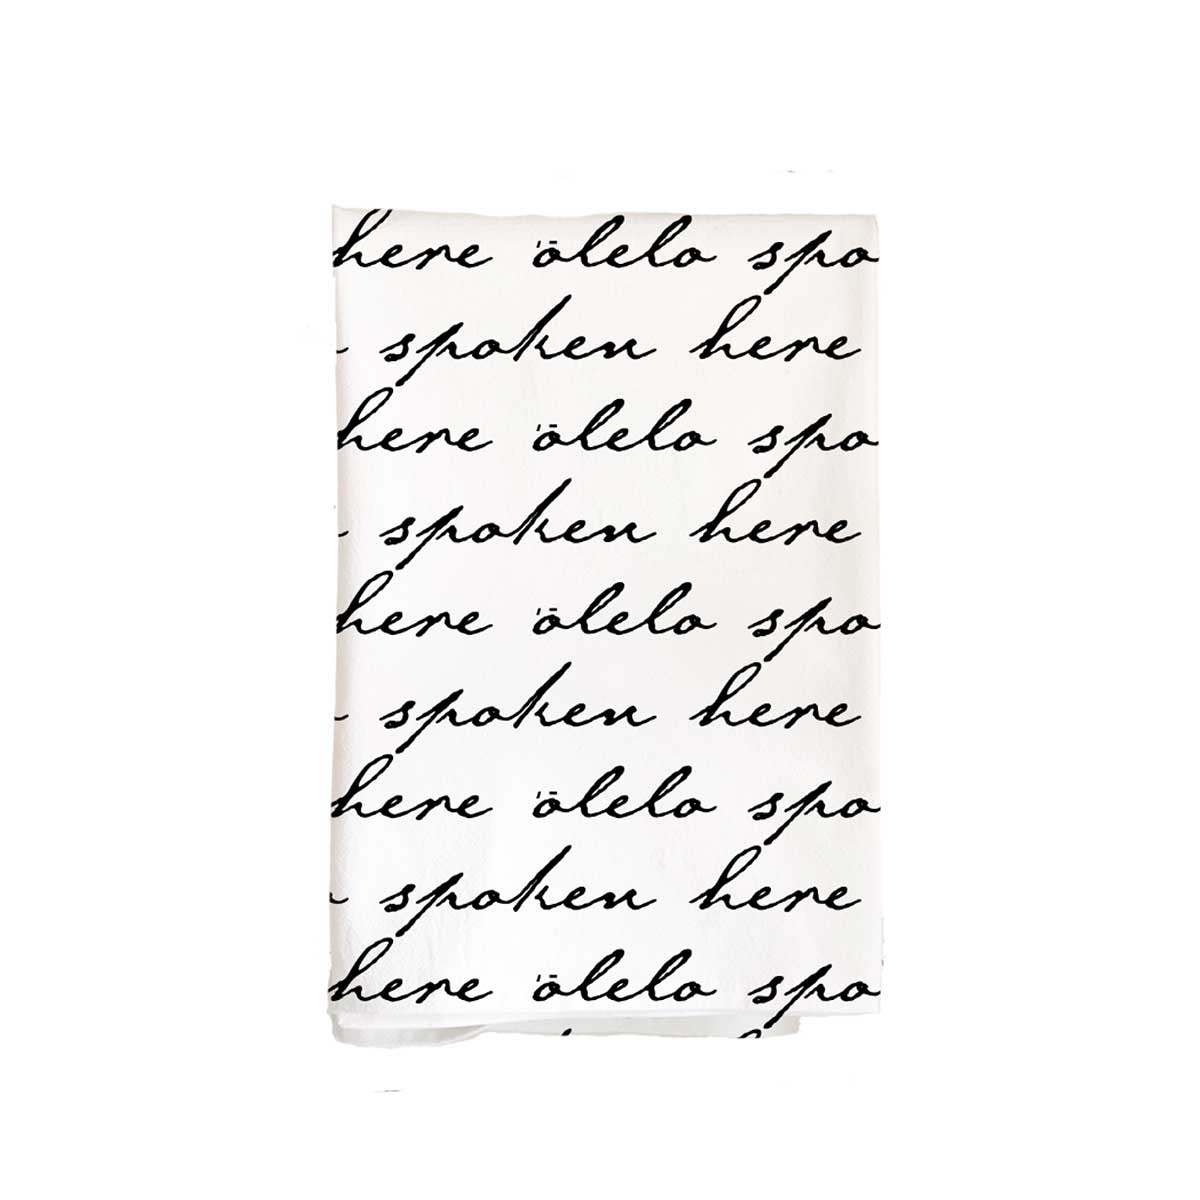 here 'ōlelo spo
spoken here
here 'ōlelo spo
spoken here
here 'ōlelo spo
spoken here
here 'ōlelo spo
spoken here
here 'ōlelo spo